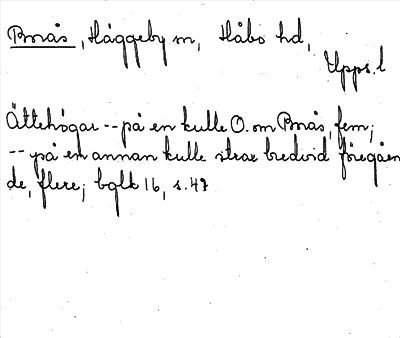 Borås, Häggeby sn, Håbo hd,
Upps. l
Ättehögar -- på en kulle O. om Borås, fem;
-- på en annan kulle strax bredvid föregåen
de, flere; bglb 16, s. 47